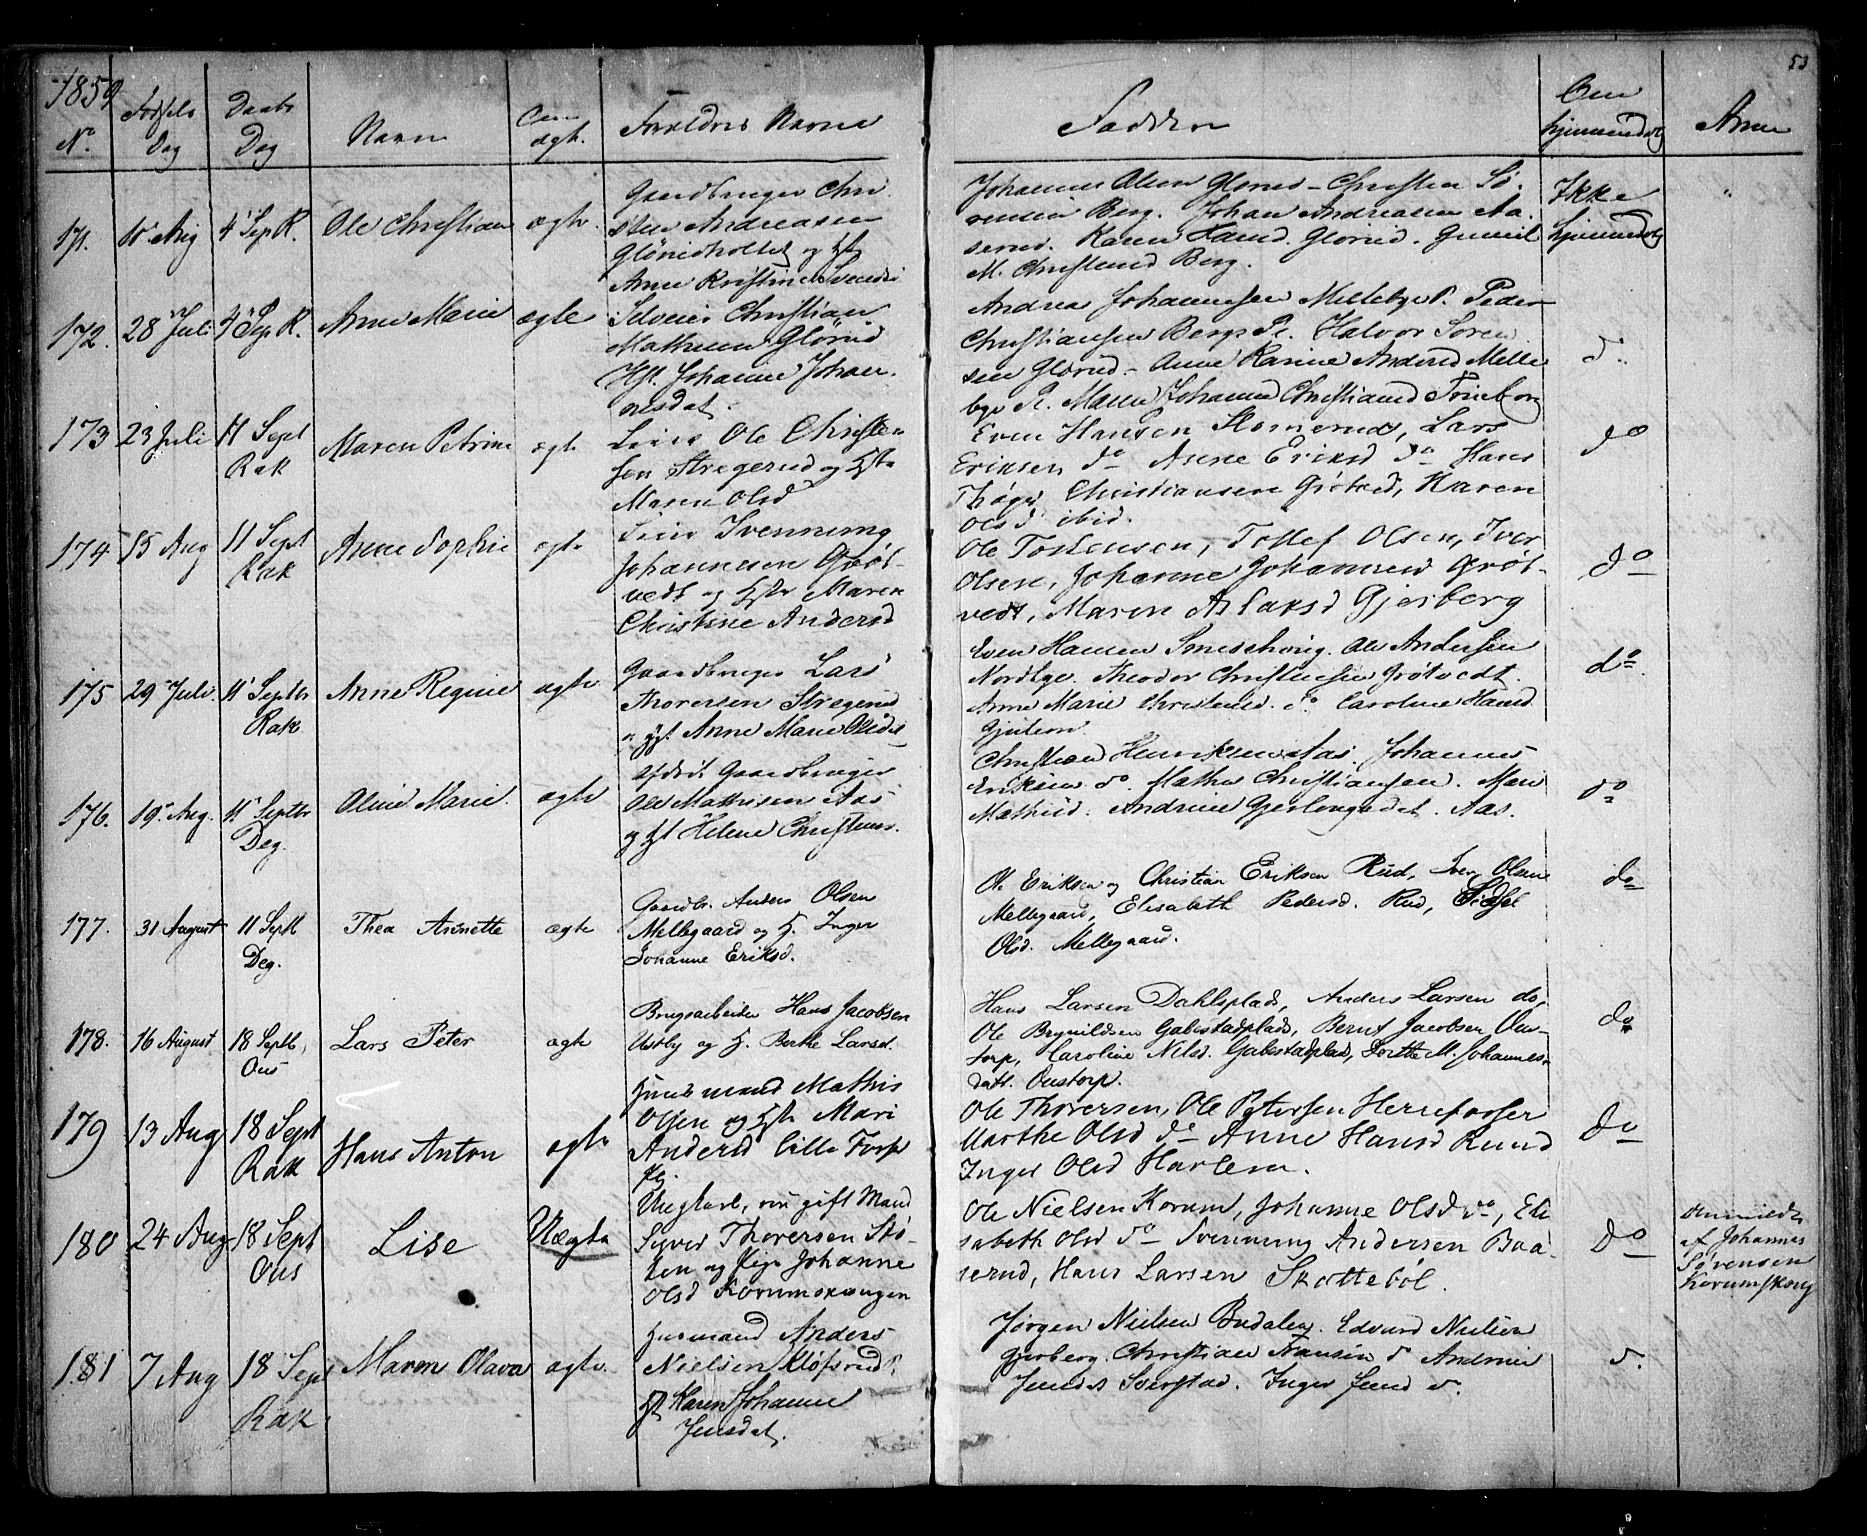 53
1859
No. Fødsels Dag Daabs Dag Navn Om ægte. Forældres Navne Faddere Om hjemmedøbt Anm
171. 10 Aug 4 Sep R. Ole Christian ægte
Gaardbruger Chri
sten Andreasen
og Hst
Anne Kristine Svends
Johannes Olsen Glorud - Christen Sø
rensen Berg. Johan Andreasen Aa
serud. Karen Hansd. Glorud. Gunnil
M. Christensd Berg.
Ikke
hjemmedøbt
172. 28 Juli 4 Sep R. Anne Marie ægte
Selveier Christian
Mathisen Glorud
Hst. Johanne Johan
nesdat.
Andreas Johannesen Millebye P. Peder
Christiansen Bergs Pl. Halvor Søren
sen Glorud - Anne Karine Andersd Mille
bye Pl. Maren Johanne Christiansd
do.
173 23 Juli 11 Sept Rak Maren Petrine ægte
Leier Ole Christen
sen Stregerud og Hst
Maren Olsd
Even Hansen Homerud, Lars
Eriksen do Anne Eriksd do Hans
Christiansen Grøtved, Karen
Olsd ibid.
do
174 15 Aug 11 Sept Rak Anne Sophie ægte
Leier Svenning
Johannesen Grøt-
vedt og Hst Maren
Christine Andersd
Ole Torkensen, Tollef Olsen, Iver
Olsen, Johanne Johannesd Grøt-
vedt, Maren Aslaksd Gjerberg
do
175 29 Juli. 11 Septbr Rak Anne Regine ægte
Gaardbruger Lars
Thoresen Stregerud
og Hst Anne Marie Olsdat
Even Hansen Smedshoug. Ole Andersen
Nordbye. Theodor Christensen Grøtvedt.
Anne Marie Christensd. do. Caroline Hansd
do.
176. 19 Aug. 11 Septbr Deg. Oline Marie. ægte
Afdøde Gaardbruger
Ole Mathisen Aas
og Hst Helene Christens.
Christian Henriksen Aas. Johannes
Eriksen do. Mathis Christiansen. Mari
Mathisd. Andrine Aas.
do
177. 31 August 11 Sept Deg. Thea Annette ægte
Gaardb. Anders Olsen
Mellegaard og H. Inger
Johanne Eriksd.
Ole Eriksen og Christian Eriksen Rud, Iver Olsen
Mellegaard, Elisabeth Pedersd. Rud, Sidsel
Olsd. Mellegaard.
do
178. 16 August 18 Septb, Ous Lars Peter ægte
Brugsarbeider Hans Jacobsen
Ustby og H. Berthe Larsd.
Hans Larsen Dahlsplads, Anders Larsen do,
Ole Brynildsen Gabestadplads, Bernt Jacobsen Ous-
torp, Caroline Nilsd. Gabestadplad, Dorthe M. Johannes-
datt. Oustorp.
do
179 13 Aug 18 Sept Rak Hans Anton ægte
Huusmand Mathis
Olsen og Hst Mari
Andersd Lille Torp
Ole Thoresen, Ole Petersen Herrefosser
Marthe Olsd do Anne Hansd Rund
Inger Olsd Harlem.
do
180 24 Aug 18 Sept Ous Lise Uægte
Ungkarl, nu gift Mand
Syver Thoresen Stø-
ten og Pige Johanne
Olsd Korumsexangen
Ole Nielsen Korum, Johanne Olsd do, Eli
sabeth Olsd do Svenning Andersen Baa-
serud, Hans Larsen Skottebøl.
do
Anmeldt
af Johannes
Sørensen
Korumskoug
181 7 Aug 18 Sept Rak Maren Olava ægte.
Husmand Anders
Nielsen Kløfsrud
Hst Karen Johanne
Jensdat.
Jørgen Nielsen Budalen. Edvard Nielsen
Gjerberg. Christian Fransen do Andrine
Jensdt Sverstad. Inger Jensd do.
do.